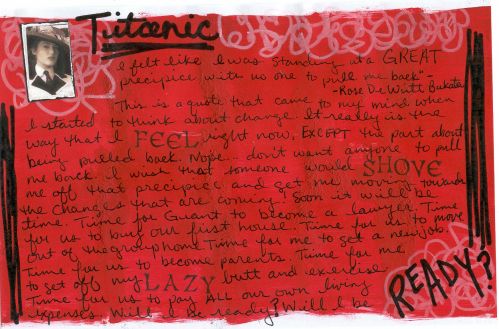 Titanic
I felt like I was standing at a GREAT
precipice with no one to pull me back" -
-Rose De Witt Bukater
This is a quote that came to my mind when
I started to think about change. It really is the
way that I FEEL right now, EXCEPT the part about
being pulled back. Nope... don't want anyone to pull
me back. I wish that someone would SHOVE
me off that precipice and get me moving towards
the changes that are coming. Soon it will be
time. Time for Grant to become a lawyer. Time
for us to buy our first house. Time for us to move
out of the grouphome. Time for me to get a new job.
Time for us to become parents. Time for me
to get off my LAZY butt and exercise.
Time for us to pay ALL our own living
expenses. Will I be ready? Will I be
READY?